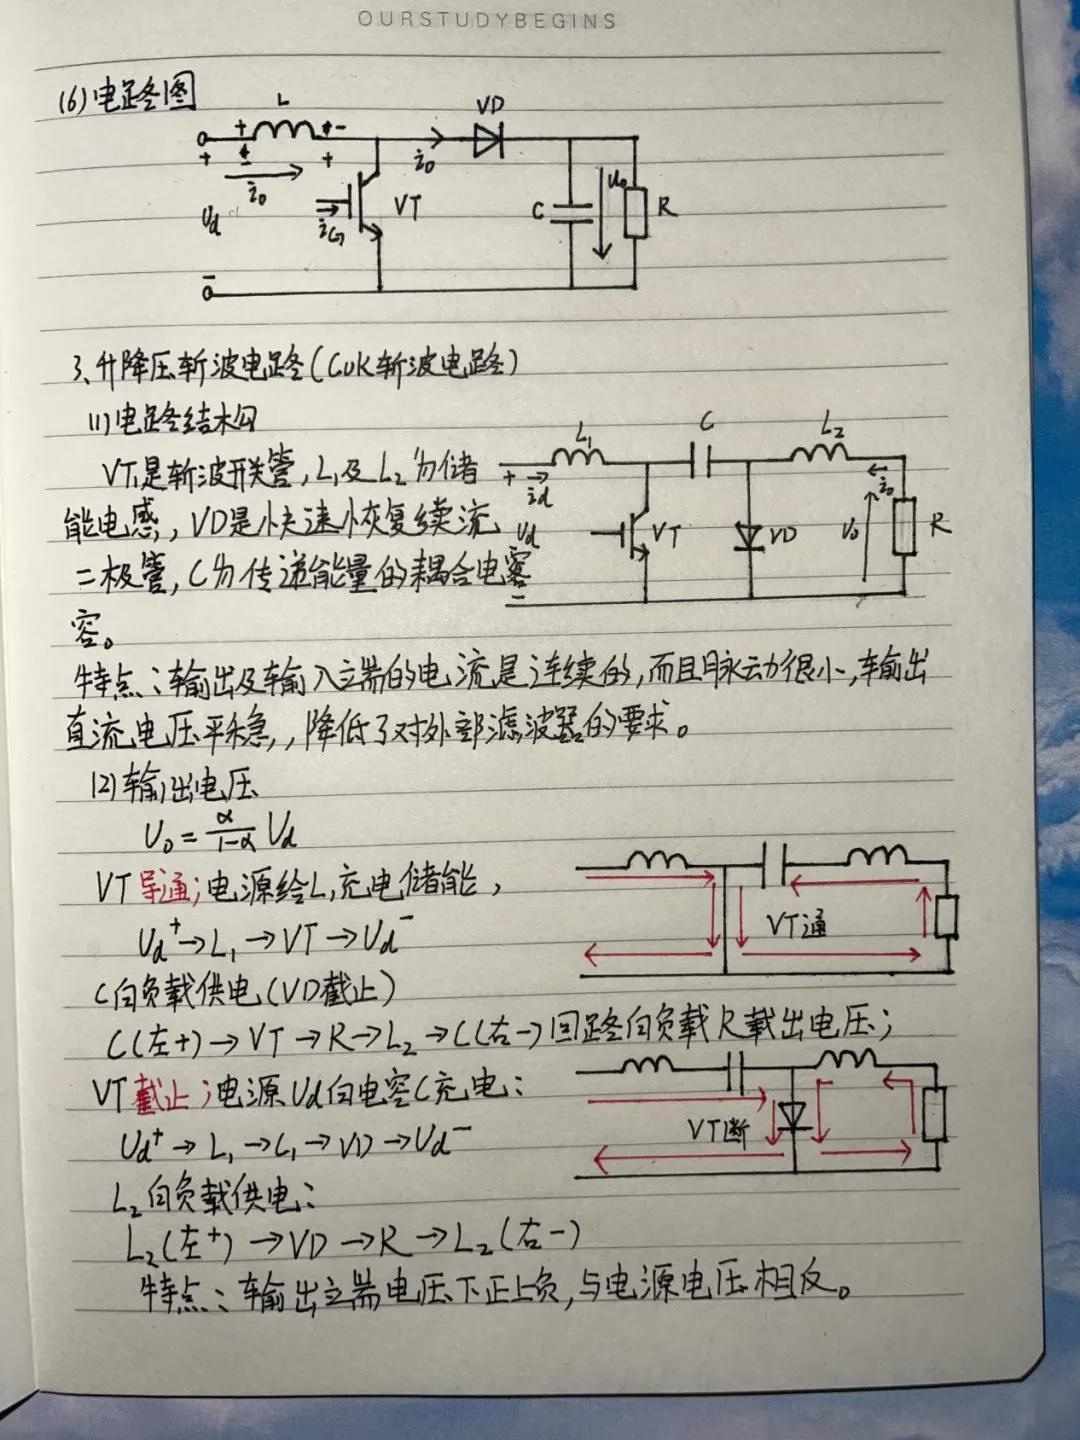 OURSTUDYBEGINS
(6)电路图
L
VD
+
+ -
+
-
+
i₀
i₀
VT
iG
Ud
C
U₀
R
-
3、升降压斩波电路(CUK斩波电路)
(1)电路结构
VT是斩波开关管,L₁及L₂为储
能电感,VD是快速恢复续流
二极管,C为传递能量的耦合电容
容。
L₁
C
L₂
+
id
i₀
Ud
VT
VD
U₀
R
-
特点:输出及输入端的电流是连续的,而且脉动很小,输出
直流电压平稳,降低了对外部滤波器的要求。
(2)输出电压
U₀=α/1-α Ud
VT导通;电源给L₁充电储能,
Ud⁺→L₁→VT→Ud⁻
VT通
C向负载供电(VD截止)
C(左+)→VT→R→L₂→C(右-)回路向负载R载出电压;
VT截止;电源Ud向电容C充电:
Ud⁺→L₁→C₁→VD→Ud⁻
VT断
L₂向负载供电:
L₂(左⁺)→VD→R→L₂(右-)
特点:输出端电压下正上负,与电源电压相反。